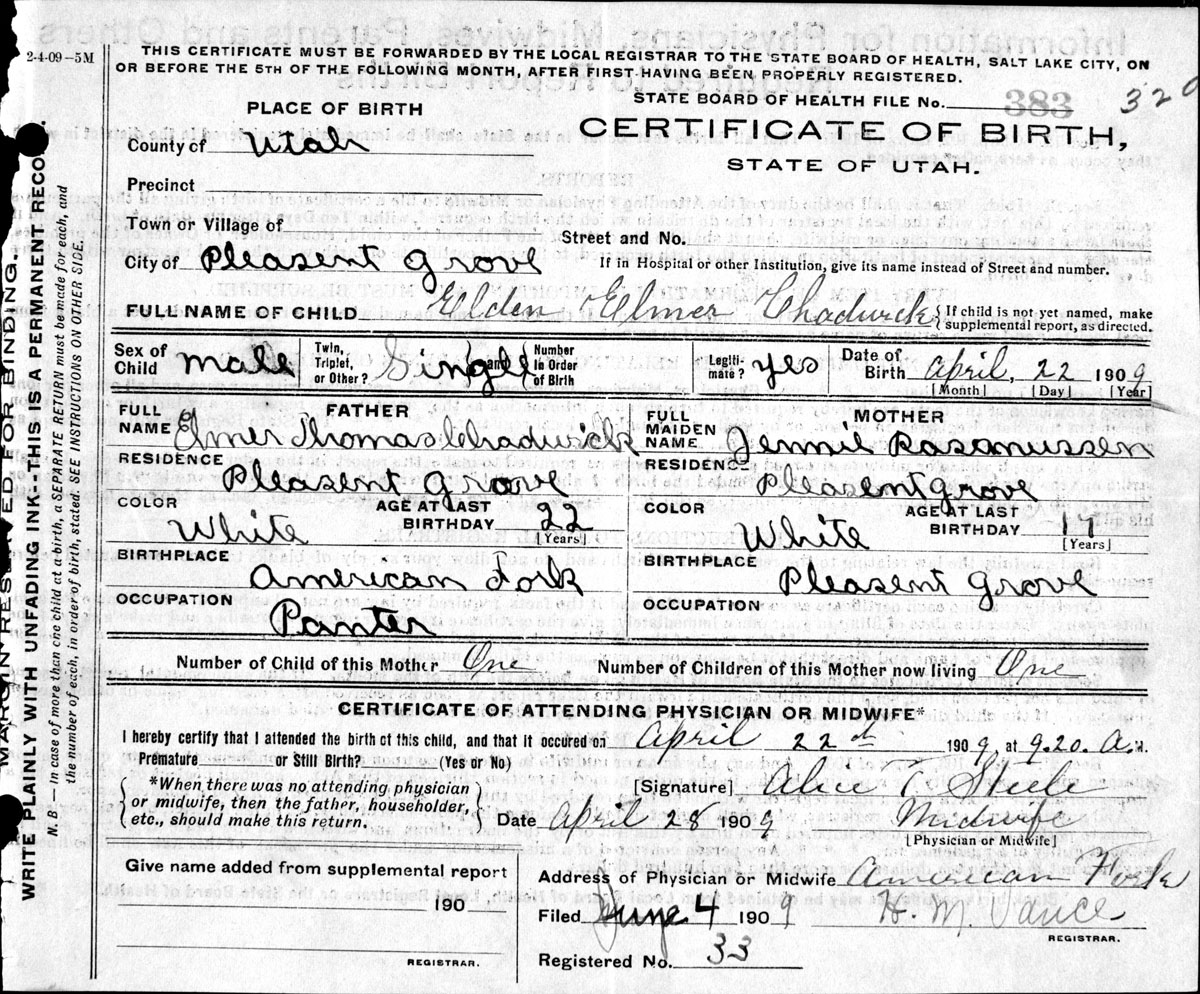 2-4-09-5M
THIS CERTIFICATE MUST BE FORWARDED BY THE LOCAL REGISTRAR TO THE STATE BOARD OF HEALTH, SALT LAKE CITY, ON
OR BEFORE THE 5TH OF THE FOLLOWING MONTH, AFTER FIRST HAVING BEEN PROPERLY REGISTERED.
STATE BOARD OF HEALTH FILE No. 383 320
PLACE OF BIRTH
CERTIFICATE OF BIRTH,
STATE OF UTAH.
County of Utah
Precinct
Town or Village of
Street and No.
City of Pleasent Grove
If in Hospital or other Institution, give its name instead of Street and number.
FULL NAME OF CHILD Elden Elmer Chadwick { If child is not yet named, make
supplemental report, as directed.
Sex of Child male Twin, Triplet, or Other? Single and Number in Order of Birth Legiti-mate? yes Date of Birth April, 22 1909
[Month] [Day] [Year]
FATHER
FULL NAME Elmer Thomas Chadwick
RESIDENCE Pleasent Grove
COLOR White AGE AT LAST BIRTHDAY 22 [Years]
BIRTHPLACE American Fork
OCCUPATION Panter
MOTHER
FULL MAIDEN NAME Jennie Rasmussen
RESIDENCE Pleasent grove
COLOR White AGE AT LAST BIRTHDAY 17 [Years]
BIRTHPLACE Pleasent Grove
OCCUPATION
Number of Child of this Mother One Number of Children of this Mother now living One
CERTIFICATE OF ATTENDING PHYSICIAN OR MIDWIFE*
I hereby certify that I attended the birth of this child, and that it occured on April 22 1909, at 9.20. A.M.
Premature or Still Birth? (Yes or No)
{ *When there was no attending physician
or midwife, then the father, householder,
etc., should make this return. }
[Signature] Alice Steele
Date April 28 1909 Midwife
[Physician or Midwife]
Give name added from supplemental report
190
REGISTRAR.
Address of Physician or Midwife American Fork
Filed June 4 1909 H. M.
REGISTRAR.
Registered No. 33
MARGIN RESERVED FOR BINDING.
WRITE PLAINLY WITH UNFADING INK--THIS IS A PERMANENT RECO
N. B.—In case of more than one child at a birth, a SEPARATE RETURN must be made for each, and
the number of each, in order of birth, stated. SEE INSTRUCTIONS ON OTHER SIDE.